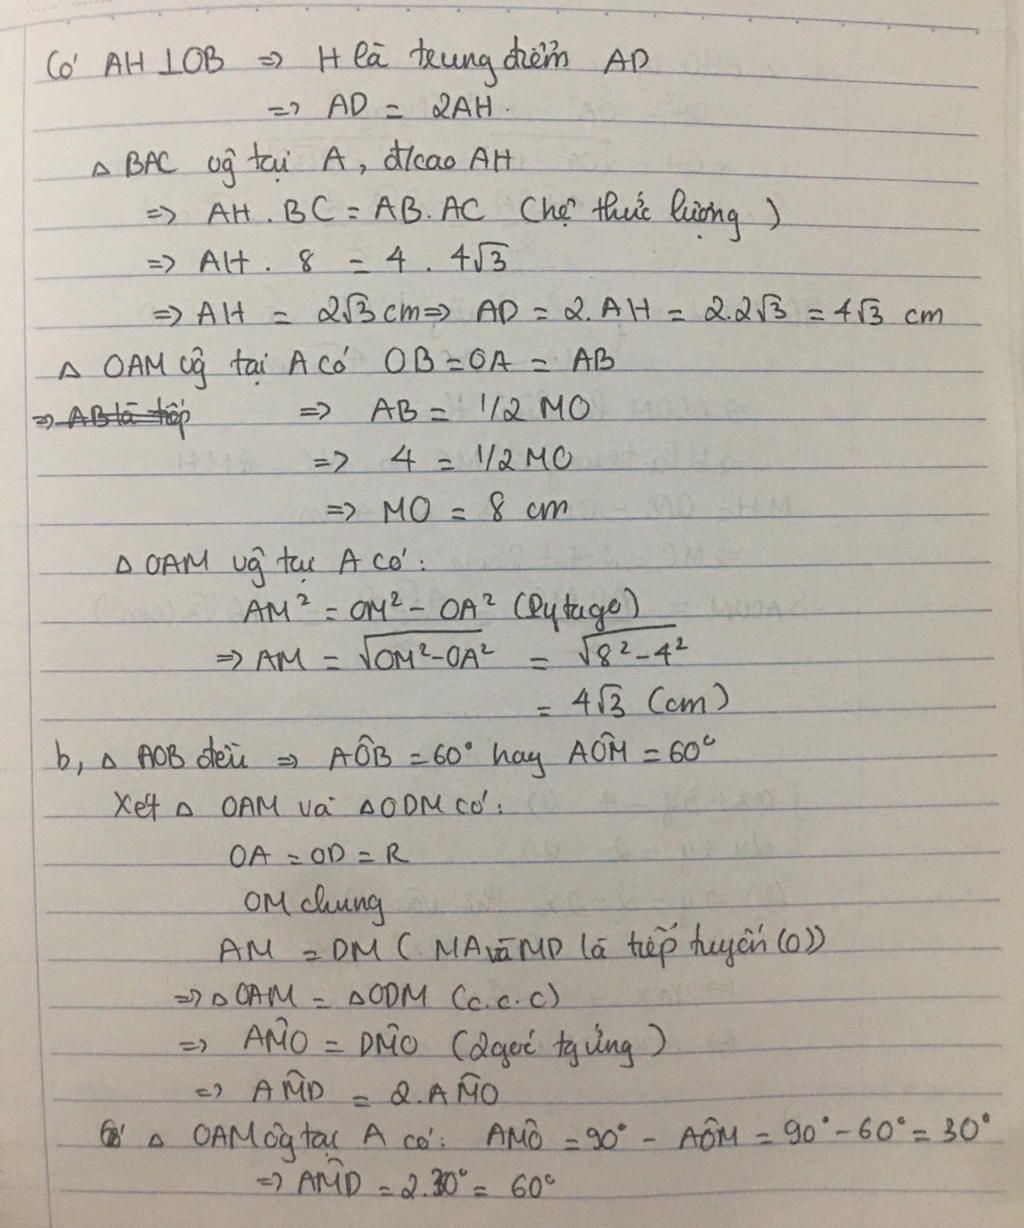 Có AH ⊥ OB => H là trung điểm AD
=> AD = 2AH.
△ BAC vg̑ tại A, đ/cao AH
=> AH . BC = AB. AC (hệ thức lượng)
=> AH . 8 = 4 . 4√3
=> AH = 2√3 cm => AD = 2. AH = 2.2√3 = 4√3 cm
△ OAM vg̑ tại A có OB = OA = AB
=> AB là tiếp => AB = 1/2 MO
=> 4 = 1/2 MO
=> MO = 8 cm
△ OAM vg̑ tại A có:
AM² = OM² - OA² (Pytago)
=> AM = √(OM² - OA²) = √(8² - 4²)
= 4√3 (cm)
b, △ AOB đều => AÔB = 60° hay AÔM = 60°
Xét △ OAM và △ ODM có:
OA = OD = R
OM chung
AM = DM ( MA và MD là tiếp tuyến (O))
=> △ OAM = △ ODM (c.c.c)
=> AM̂O = DM̂O (2 góc tg ứng)
=> AM̂D = 2.AM̂O
△ OAM vg̑ tại A có: AMÔ = 90° - AÔM = 90° - 60° = 30°
=> AM̂D = 2.30° = 60°